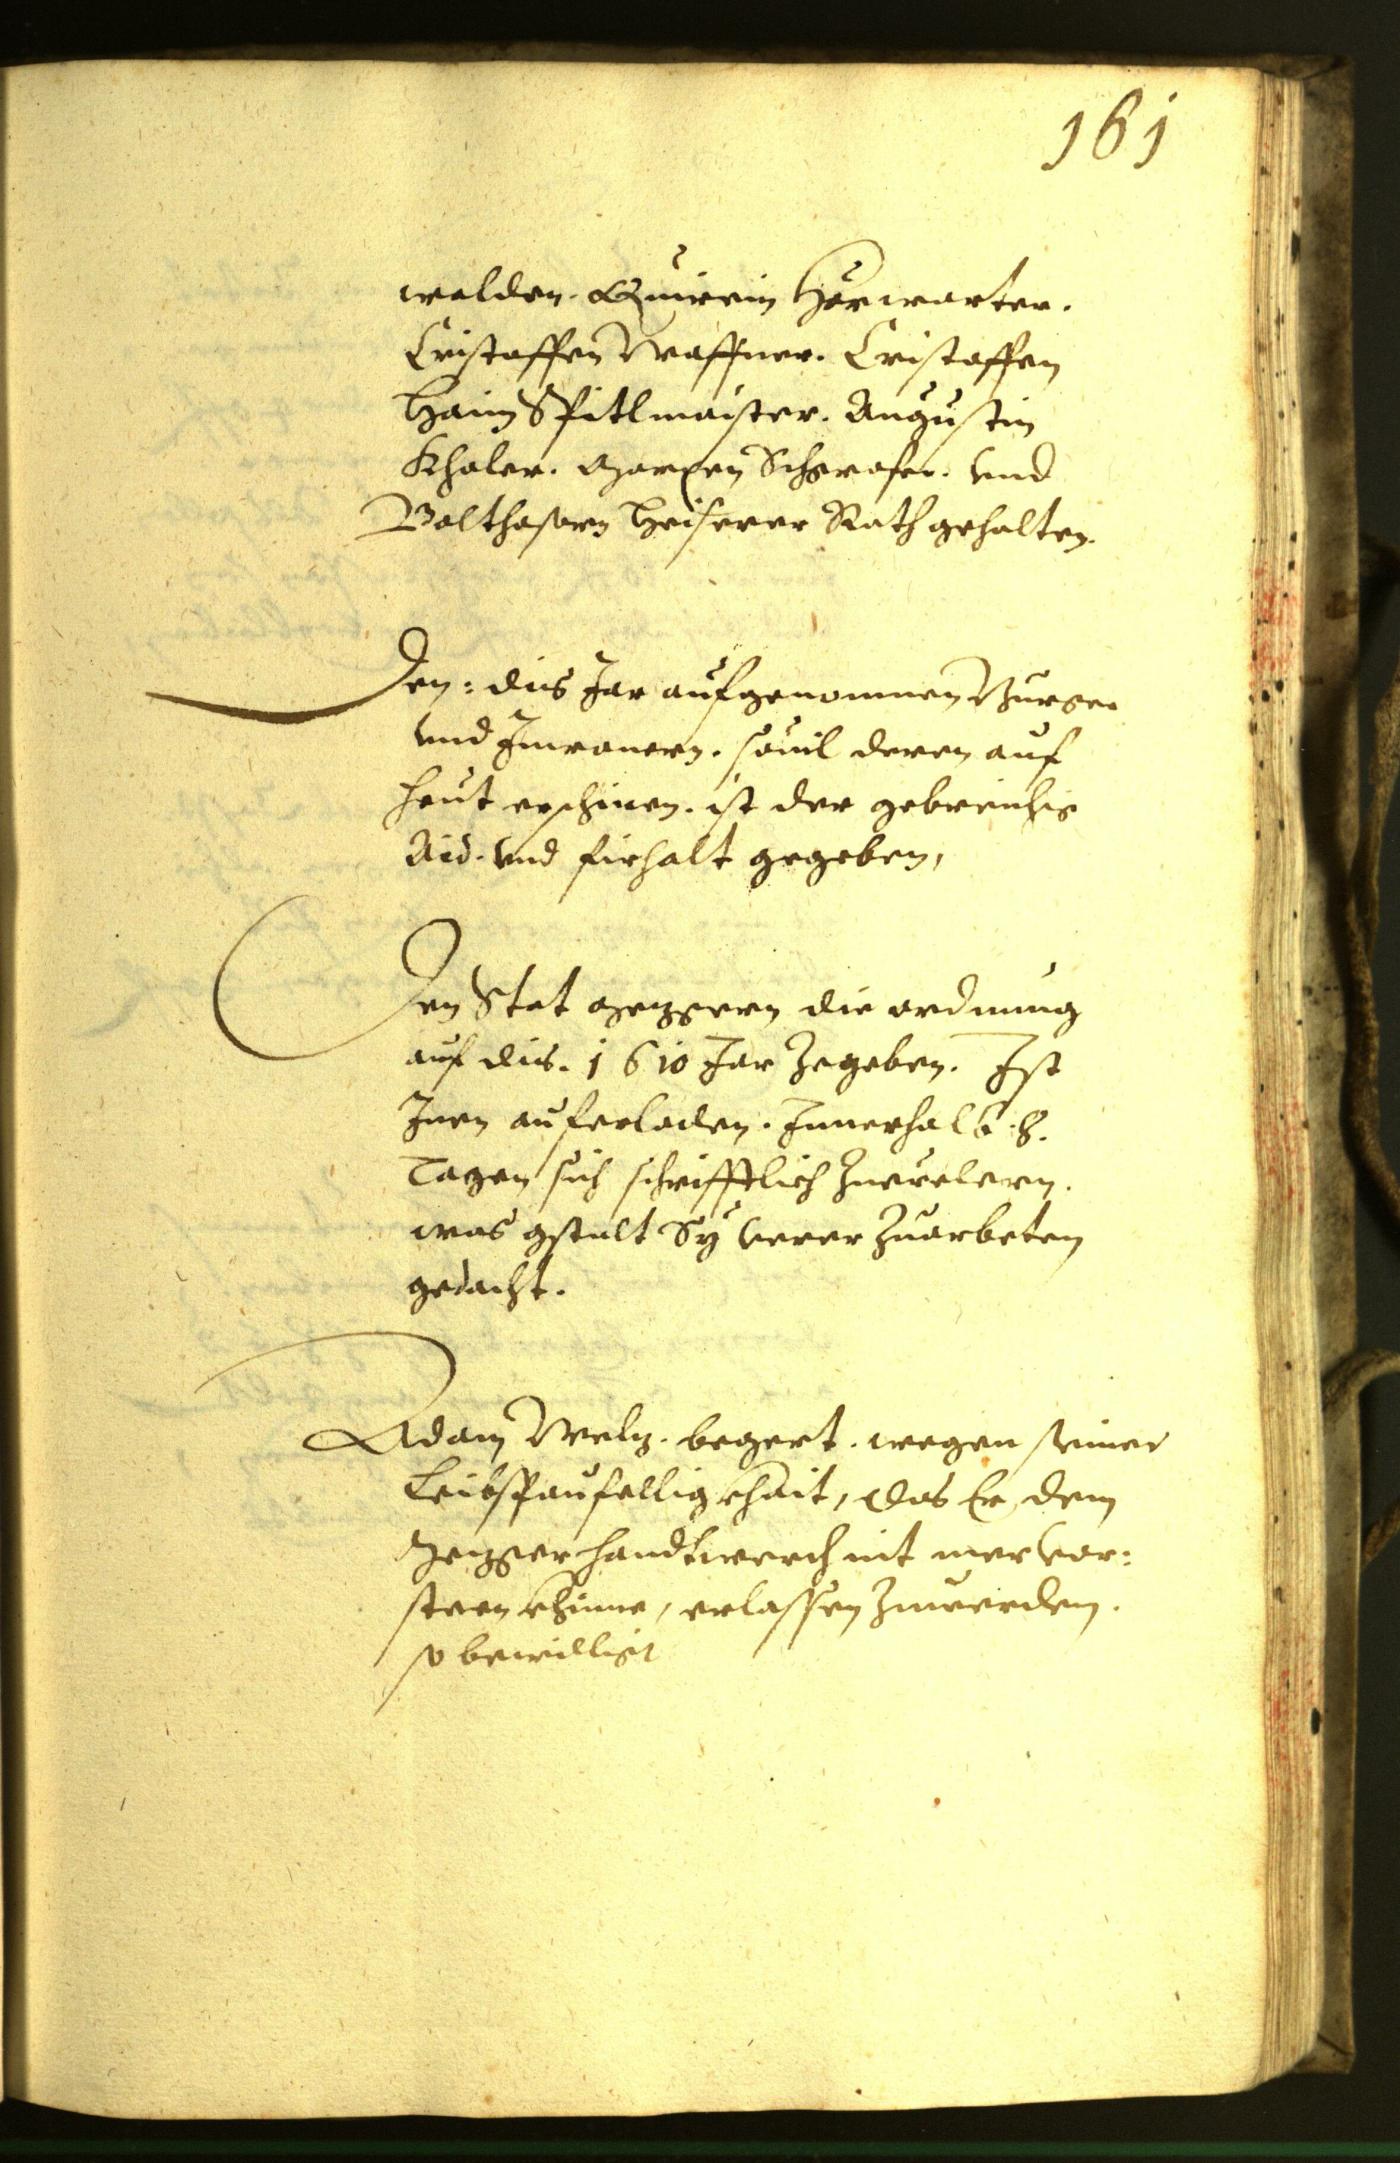 161
walden. Quirein Hörwarter.
Cristoffen Waffner. Cristoffen
Haim Spitlmaister. Augustin
Khaler. Marxen Schgrafer. vnd
Balthasarn Heiserer Rath gehalten.
Den: dis Jar aufgenomnen Burger
vnd Inwonern. souil deren auf
heut erschinen. ist der gebreichig
Aid. vnd firhalt gegeben,
Den Stat Mezgern die ordnung
auf dis. 1610 Jar zegeben. Ist
Inen auferladen. Innerhalb .8.
Tagen sich schrifftlich zuerclern.
was gstalt Sy verer zuarbeten
gedacht.
Adam Welz. begert. wegen seiner
Leibspaufelligkhait, das Er dem
Mezger handtwerch nit mer vor:
steen khinne, erlassen zuwerden.
so bewilligt